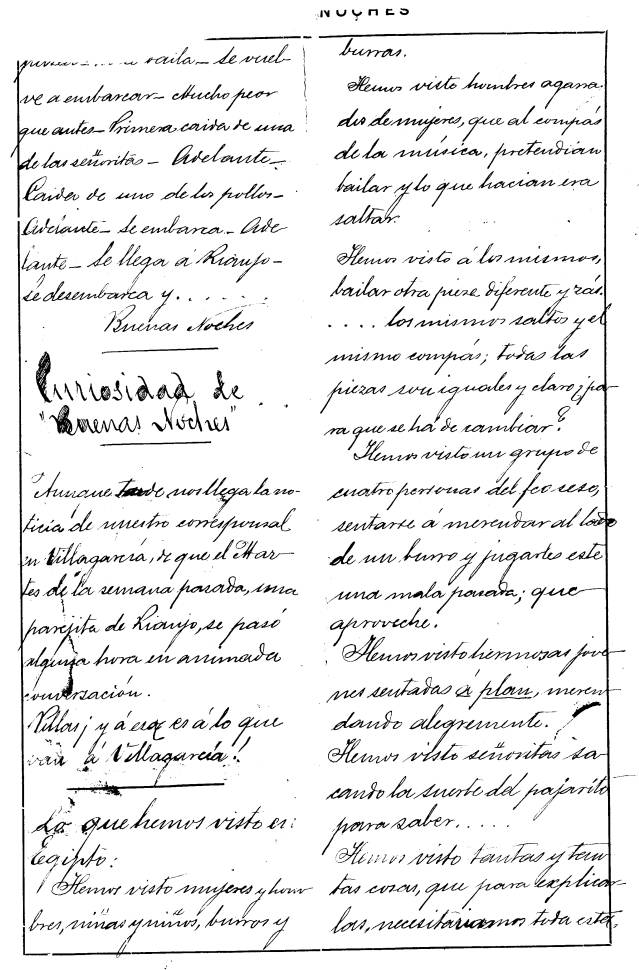 NOCHES
baila - Se vuel-
ve a embarcar - Mucho peor
que antes - Primera caida de una
de las señoritas - Adelante -
Caida de uno de los pollos -
Adelante - Se embarca - Ade-
lante - Se llega á Rianjo -
se desembarca y......
Buenas Noches
Curiosidad de
"Buenas Noches"
Aunque tarde nos llega la no-
ticia de nuestro corresponsal
en Villagarcía, de que el Mar-
tes de la semana pasada, una
parejita de Rianjo, se pasó
alguna hora en animada
conversación.
y á eso es á lo que
van á Villagarcía!
Lo que hemos visto en
Egipto:
Hemos visto mujeres y hom-
bres, niñas y niños, burros y
burras.
Hemos visto hombres agarra-
dos de mujeres, que al compás
de la música, pretendian
bailar y lo que hacian era
saltar.
Hemos visto á los mismos,
bailar otra pieza diferente y zás.
.... los mismos saltos y el
mismo compás; todas las
piezas son iguales y claro ¿pa-
ra que se há de cambiar?
Hemos visto un grupo de
cuatro personas del feo sexo,
sentarse á merendar al lado
de un burro y jugarles este
una mala pasada; que
aproveche.
Hemos visto hermosas jove-
nes sentadas á plan, meren-
dando alegremente.
Hemos visto señoritas sa-
cando la suerte del pajarito
para saber.....
Hemos visto tantas y tan-
tas cosas, que para explicar-
las, necesitariamos toda esta